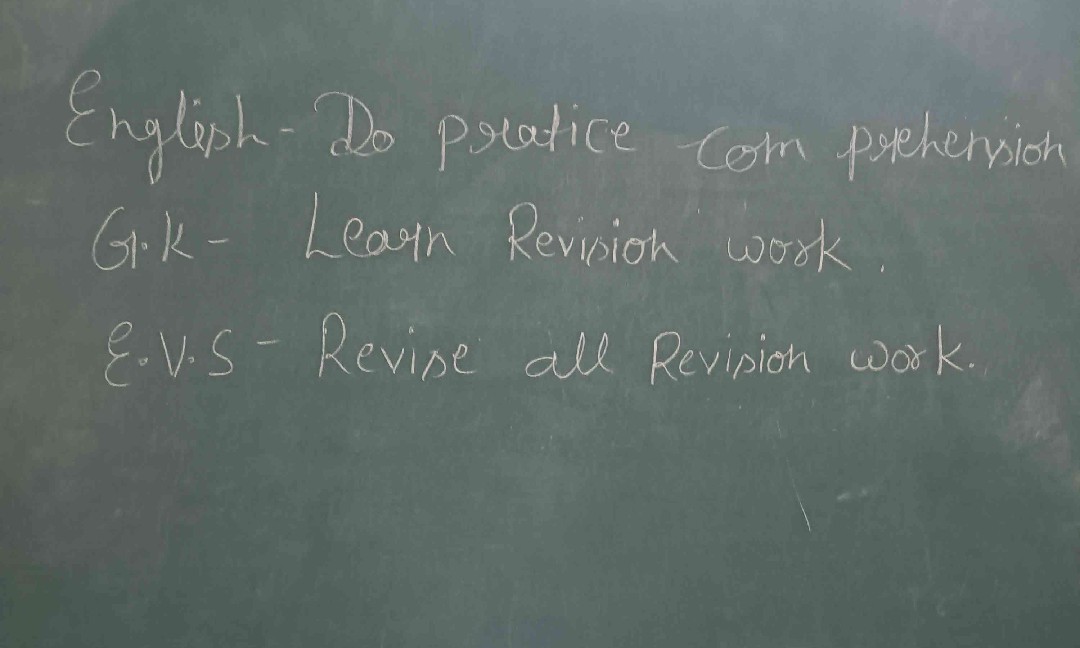 English - Do pratice com prehension
G.K - Learn Revision work.
E.V.S - Revise all Revision work.